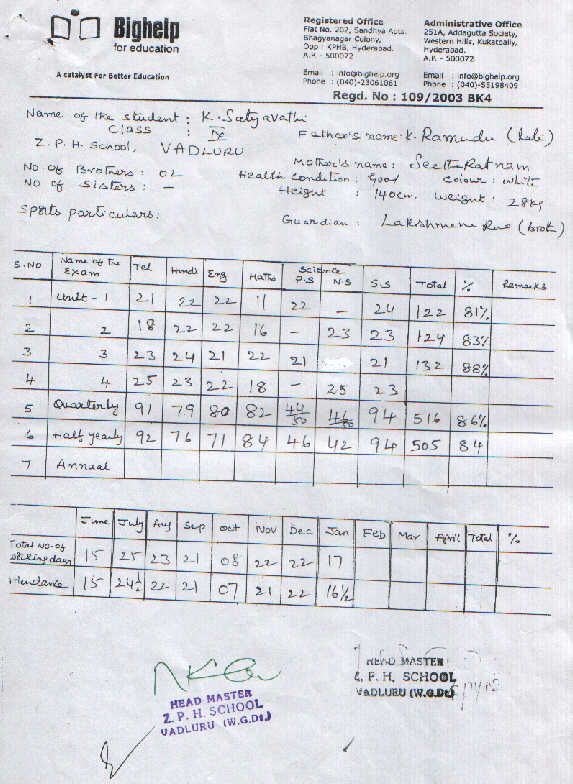 Bighelp
for education
A catalyst For Better Education
Registered Office
Flat No. 202, Sandhya Apts.
Bhagyanagar Colony,
Opp : KPHB, Hyderabad.
A.P. - 500072
Email : info@bighelp.org
Phone : (040)-23061061
Administrative Office
251A, Addagutta Society,
Western Hills, Kukatpally,
Hyderabad.
A.P. - 500072
Email : info@bighelp.org
Phone : (040)-55198409
Regd. No : 109/2003 BK4
Name of the student : K. Satyavathi
Class : IX
Father's name: K. Ramudu (Late)
Z. P. H. School, VADLURU
Mother's name: Seetha Ratnam
No. of Brothers : 02 Health Condition : Good Colour : white
No of Sisters : - Height : 140cm. Weight : 28kg
Sports particulars:
Guardian : Lakshmana Rao (Broth)
S.NO Name of the Exam Tel Hindi Eng Maths Science P.S N.S S.S Total % Remarks
1 Unit - 1 21 22 22 11 22 - 24 122 81%
2 2 18 22 22 16 - 23 23 124 83%
3 3 23 24 21 22 21 - 21 132 88%
4 4 25 23 22 18 - 25 23
5 Quarterly 91 79 80 82 44/50 46/50 94 516 86%
6 Half yearly 92 76 71 84 46 42 94 505 84
7 Annual
June July Aug Sep Oct Nov Dec Jan Feb Mar April Total %
Total No. of working days 15 25 23 21 08 22 22 17
15 24½ 22 21 07 21 22 16½
HEAD MASTER
Z. P. H. SCHOOL
VADLURU (W.G.Dt.)
HEAD MASTER
Z. P. H. SCHOOL
VADLURU (W.G.Dt.)